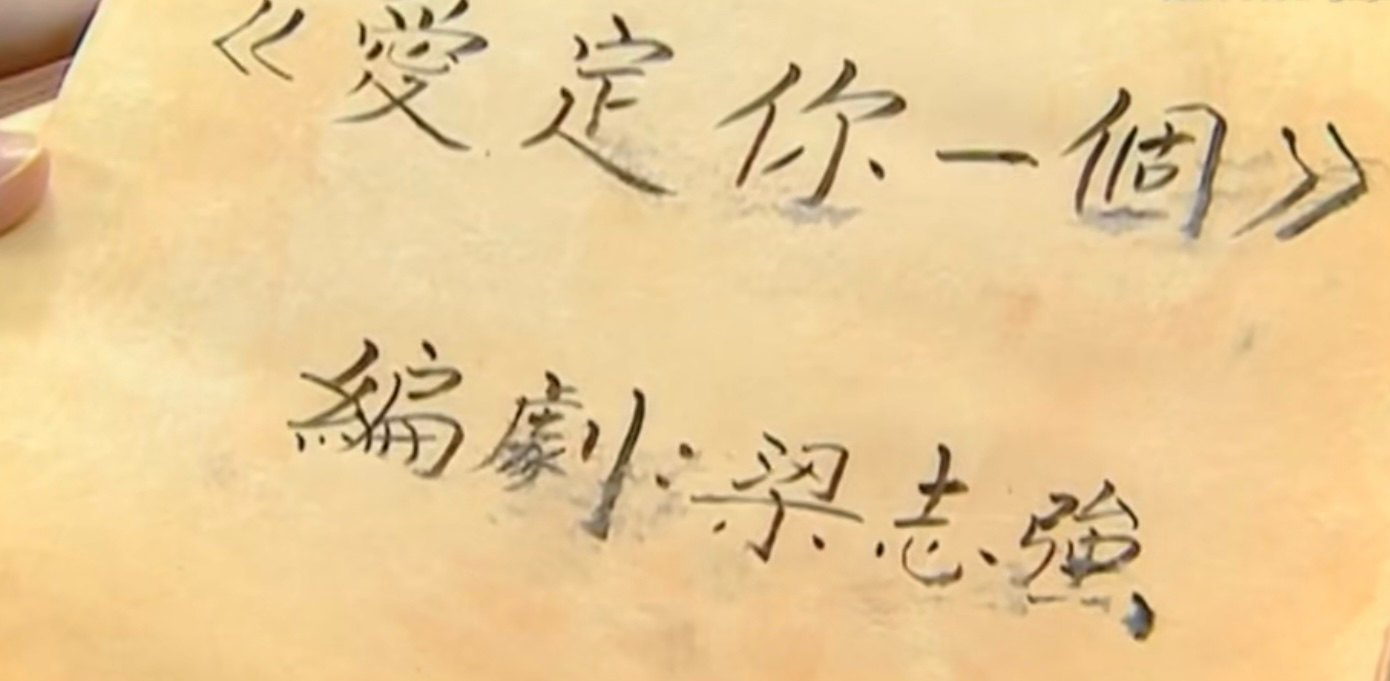 《愛定你一個》
編劇：梁志強